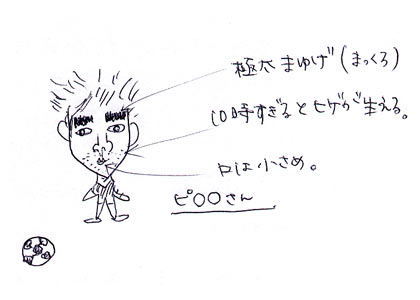 極太まゆげ(まっくろ)
10時すぎるとヒゲが生える。
口は小さめ。
ピ〇〇さん